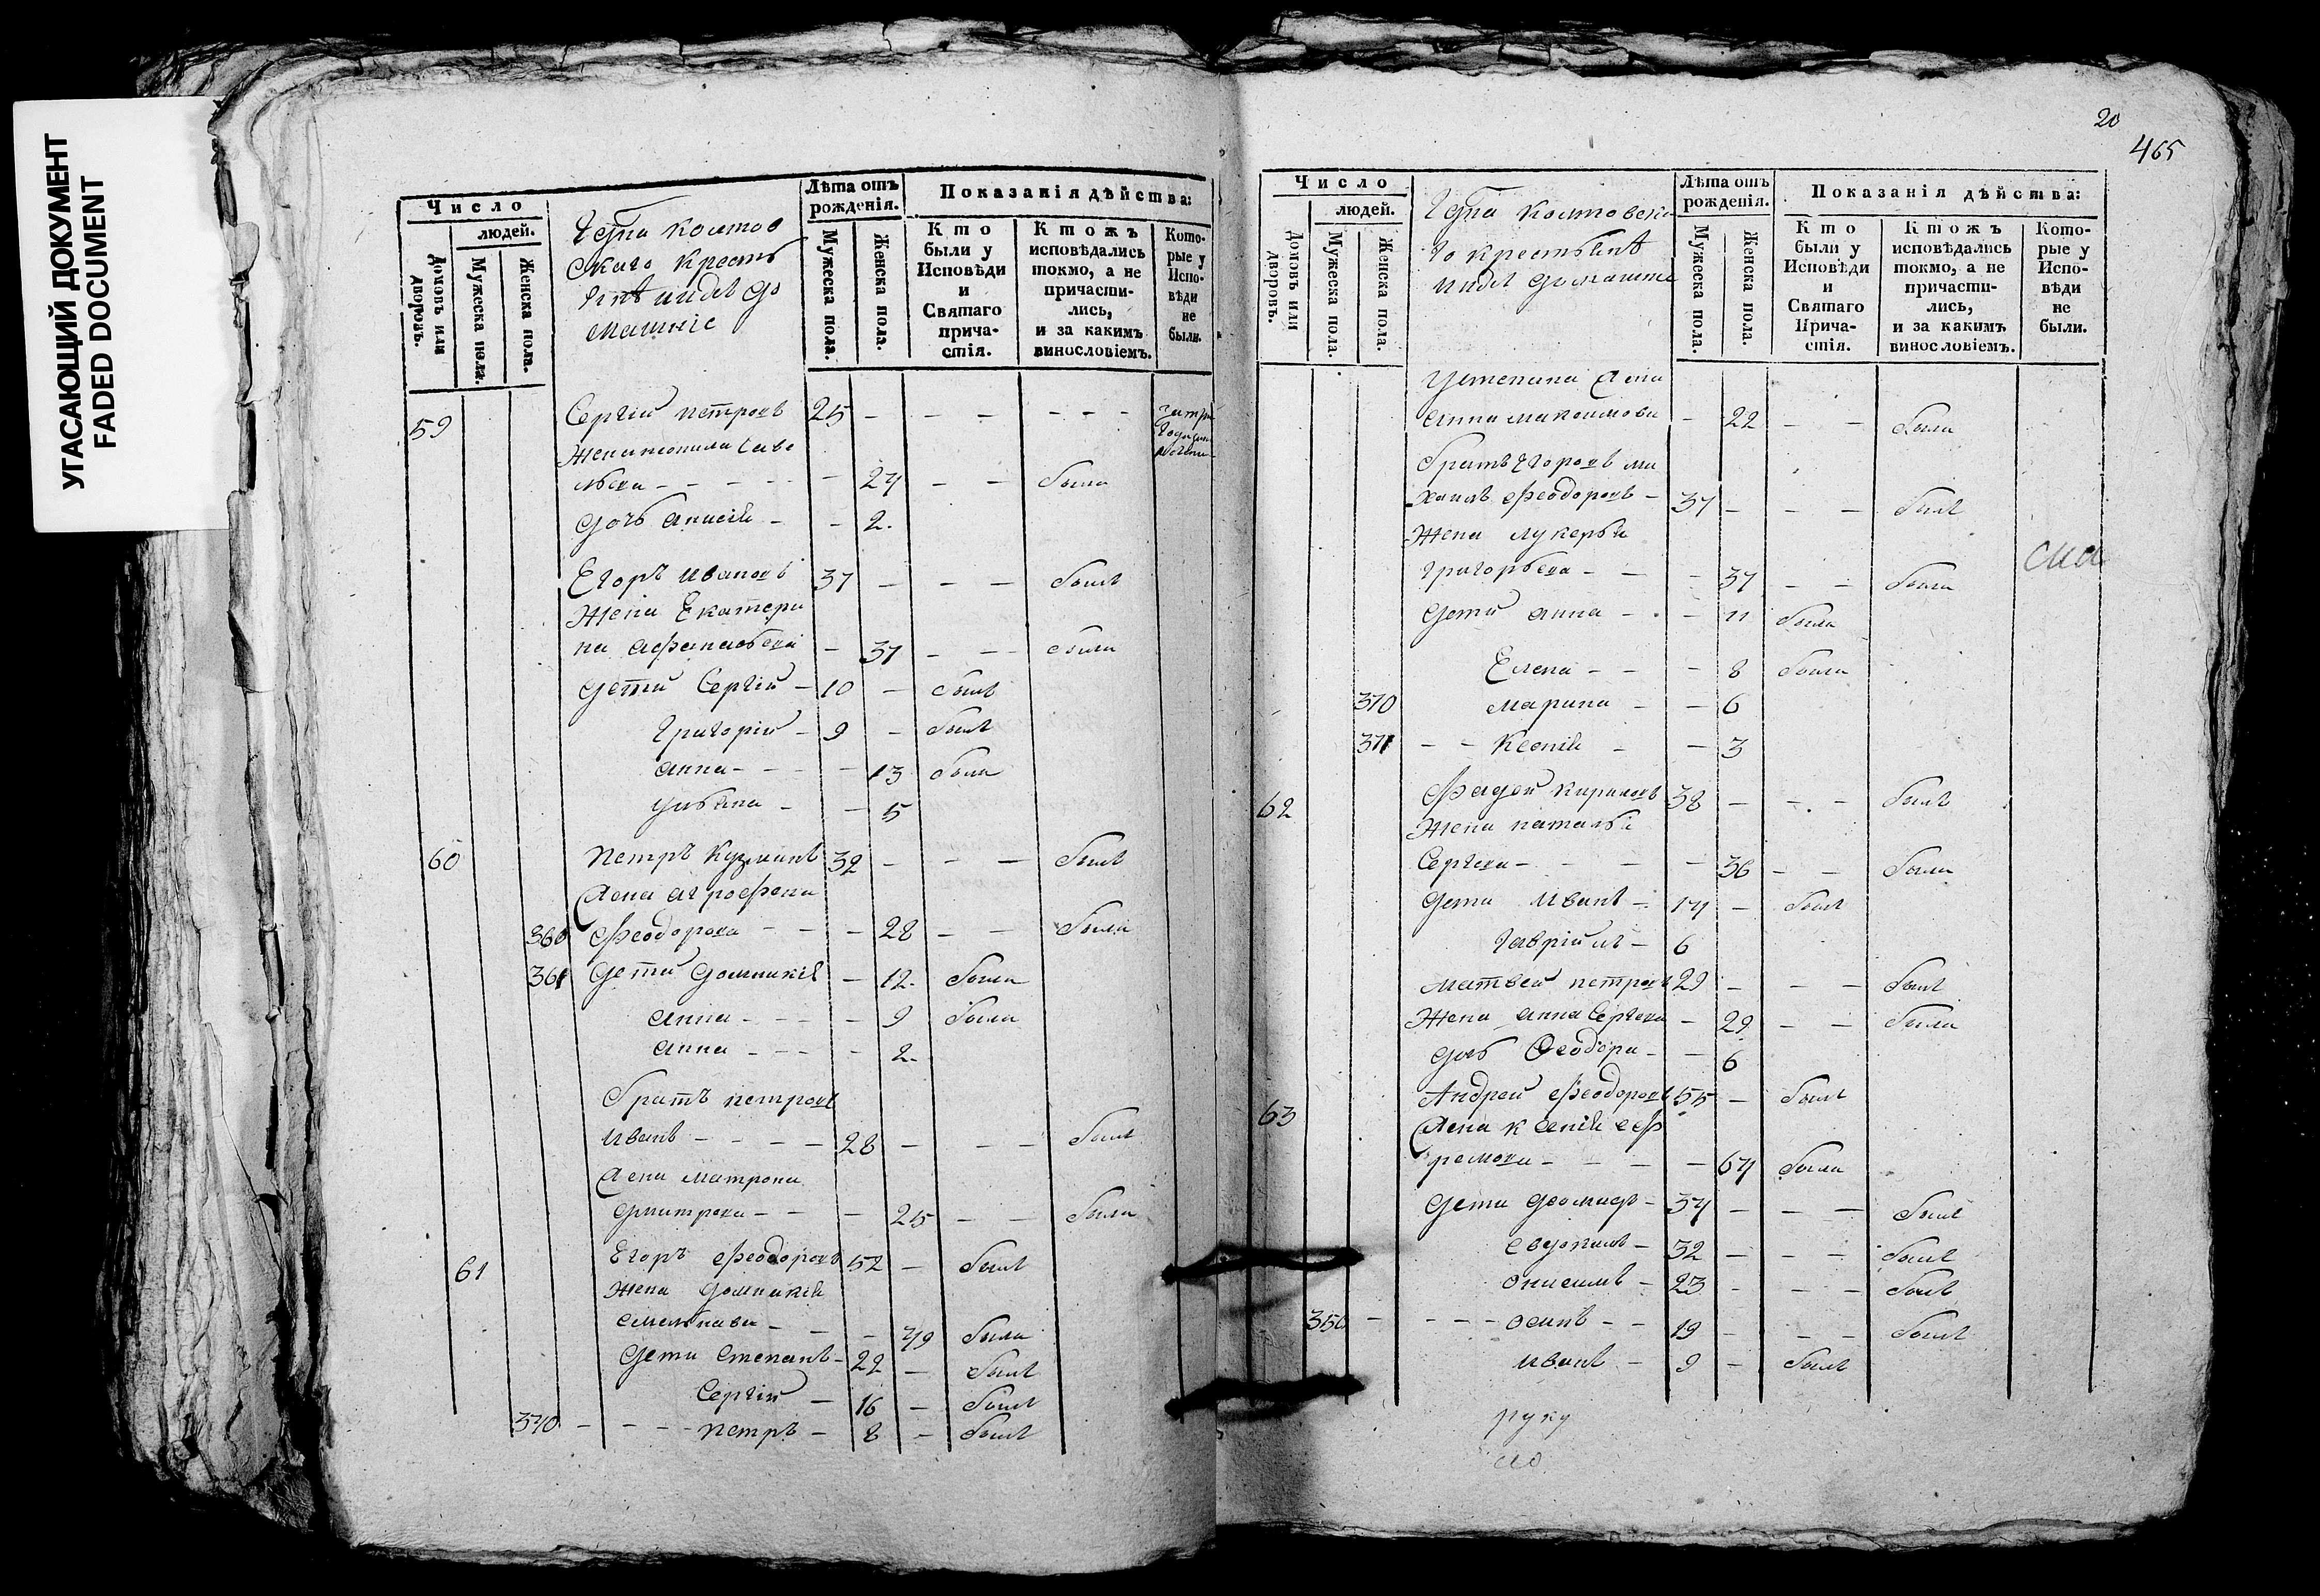 УГАСАЮЩИЙ ДОКУМЕНТ
FADED DOCUMENT
Число
людей.
Домовъ или дворовъ.
Мужеска пола.
Женска пола.
Лѣта отъ рожденія.
Мужеска пола.
Женска пола.
Показанія дѣйства:
Кто были у Исповѣди и Святаго причастія.
Ктожъ исповѣдались токмо, а не причастились, и за какимъ винословіемъ.
Которые у Исповѣди не были.
59 Сергій петровъ 25 – – – – – –
Жена
– – – – 27 – – была
дочь анисія – – 2.
Егоръ ивановъ 37 – – – былъ
Жена Екатери
на афанасьева – 37 – – была
дети Сергій – 10 – былъ
григорій – 9 – былъ
анна – – – – 13 была
ульяна – – 5
60 петръ кузминъ 32 – – – былъ
жена агрофена
360 феодорова – – – 28 – – была
361 дети домникія – 12. была
анна – – – – 9 была
анна – – – – 2.
братъ петровъ
иванъ – – – – 28 – – – былъ
жена матрона
дмитрева – – – 25 – – была
61 Егоръ феодоровъ 52 – былъ
жена домникія
– – – 49 была
дети степанъ – 22 – былъ
Сергій – 16 – былъ
340 – – – – петръ – 8 – былъ
20
465
Число
людей.
Домовъ или дворовъ.
Мужеска пола.
Женска пола.
Лѣта отъ рожденія.
Мужеска пола.
Женска пола.
Показанія дѣйства:
Кто были у Исповѣди и Святаго Причастія.
Ктожъ исповѣдались токмо, а не причастились, и за какимъ винословіемъ.
Которые у Исповѣди не были.
устепана жена
анна максимова – 22 – – была
братъ егоровъ ми
хаилъ феодоровъ – 37 – – – былъ
Жена лукерья
григорьева – – – 37 – – была
дети анна – – – 11 была
Елена – – – 8 была
370 марина – – 6
371 – – ксенія – – 3
62 Фадей кириловъ 38 – – – былъ
Жена наталья
Сергева – – – – 36 – – была
дети иванъ – 14 – былъ
гавріилъ – 6
матвей петровъ 29 – – – былъ
Жена анна Сергева – 29 – – была
дочь Феодора – – 6
63 Андрей феодоровъ 55 – былъ
жена ксенія еф
ремова – – – – 64 была
дети – 34 – – – былъ
евдокимъ – 32 – – – былъ
онисимъ – 23 – – – былъ
350 – – – – осипъ – – 19 – – былъ
иванъ – 9 – былъ
руку